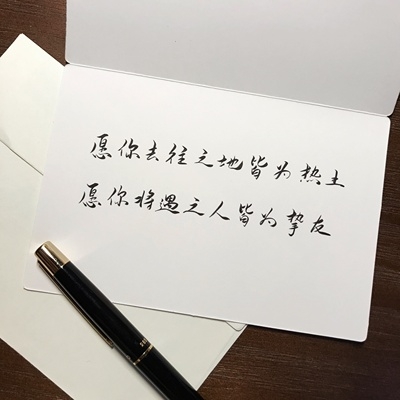 愿你去往之地皆为热土
愿你将遇之人皆为挚友